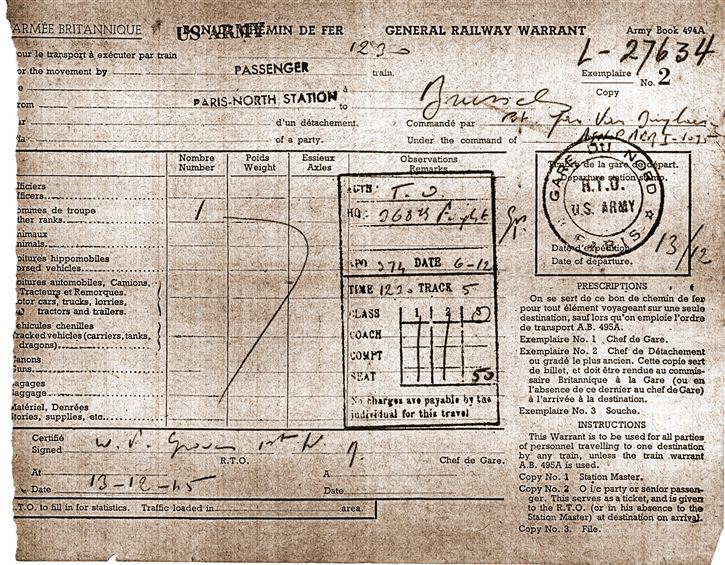 ARMÉE BRITANNIQUE BON DE CHEMIN DE FER GENERAL RAILWAY WARRANT Army Book 494A
US ARMY
our le transport à exécuter par train 1230 L-27634
or the movement by PASSENGER train. Exemplaire No. 2
Copy
PARIS-NORTH STATION à
rom to
d'un détachement. Commandé par
of a party. Under the command of
Nombre Poids Essieux Observations
Number Weight Axles Remarks
fficiers
fficers
ommes de troupe
ther ranks 1
nimaux
nimals
oitures hippomobiles
orsed vehicles
oitures automobiles, Camions,
Tracteurs et Remorques.
otor cars, trucks, lorries,
tractors and trailers.
éhicules chenillés
racked vehicles (carriers, tanks,
dragons)
anons
uns
agages
aggage
atériel, Denrées
tories, supplies, etc.
AUTH: T.O.
HQ:
APO 374 DATE 6-12
TIME 1230 TRACK 5
CLASS 1 2 3
COACH
COMPT
SEAT 50
No charges are payable by the
individual for this travel
Timbre de la gare de départ.
Departure station stamp
GARE DU NORD
R.T.O.
U.S. ARMY
PARIS
Date d'expédition
Date of departure. 13/12
PRESCRIPTIONS
On se sert de ce bon de chemin de fer
pour tout élément voyageant sur une seule
destination, sauf lors qu'on emploie l'ordre
de transport A.B. 495A.
Exemplaire No. 1 Chef de Gare.
Exemplaire No. 2 Chef de Détachement
ou gradé le plus ancien. Cette copie sert
de billet, et doit être rendue au commis-
saire Britannique à la Gare (ou en
l'absence de ce dernier au chef de Gare)
à l'arrivée à la destination.
Exemplaire No. 3 Souche.
INSTRUCTIONS
This Warrant is to be used for all parties
of personnel travelling to one destination
by any train, unless the train warrant
A.B. 495A is used.
Copy No. 1 Station Master.
Copy No. 2 O i/c party or senior passen-
ger. This serves as a ticket, and is given
to the R.T.O. (or in his absence to the
Station Master) at destination on arrival.
Copy No. 3. File.
Certifié
Signed R.T.O. Chef de Gare.
At A
Date 13-12-45 Date
.T.O. to fill in for statistics. Traffic loaded in area.